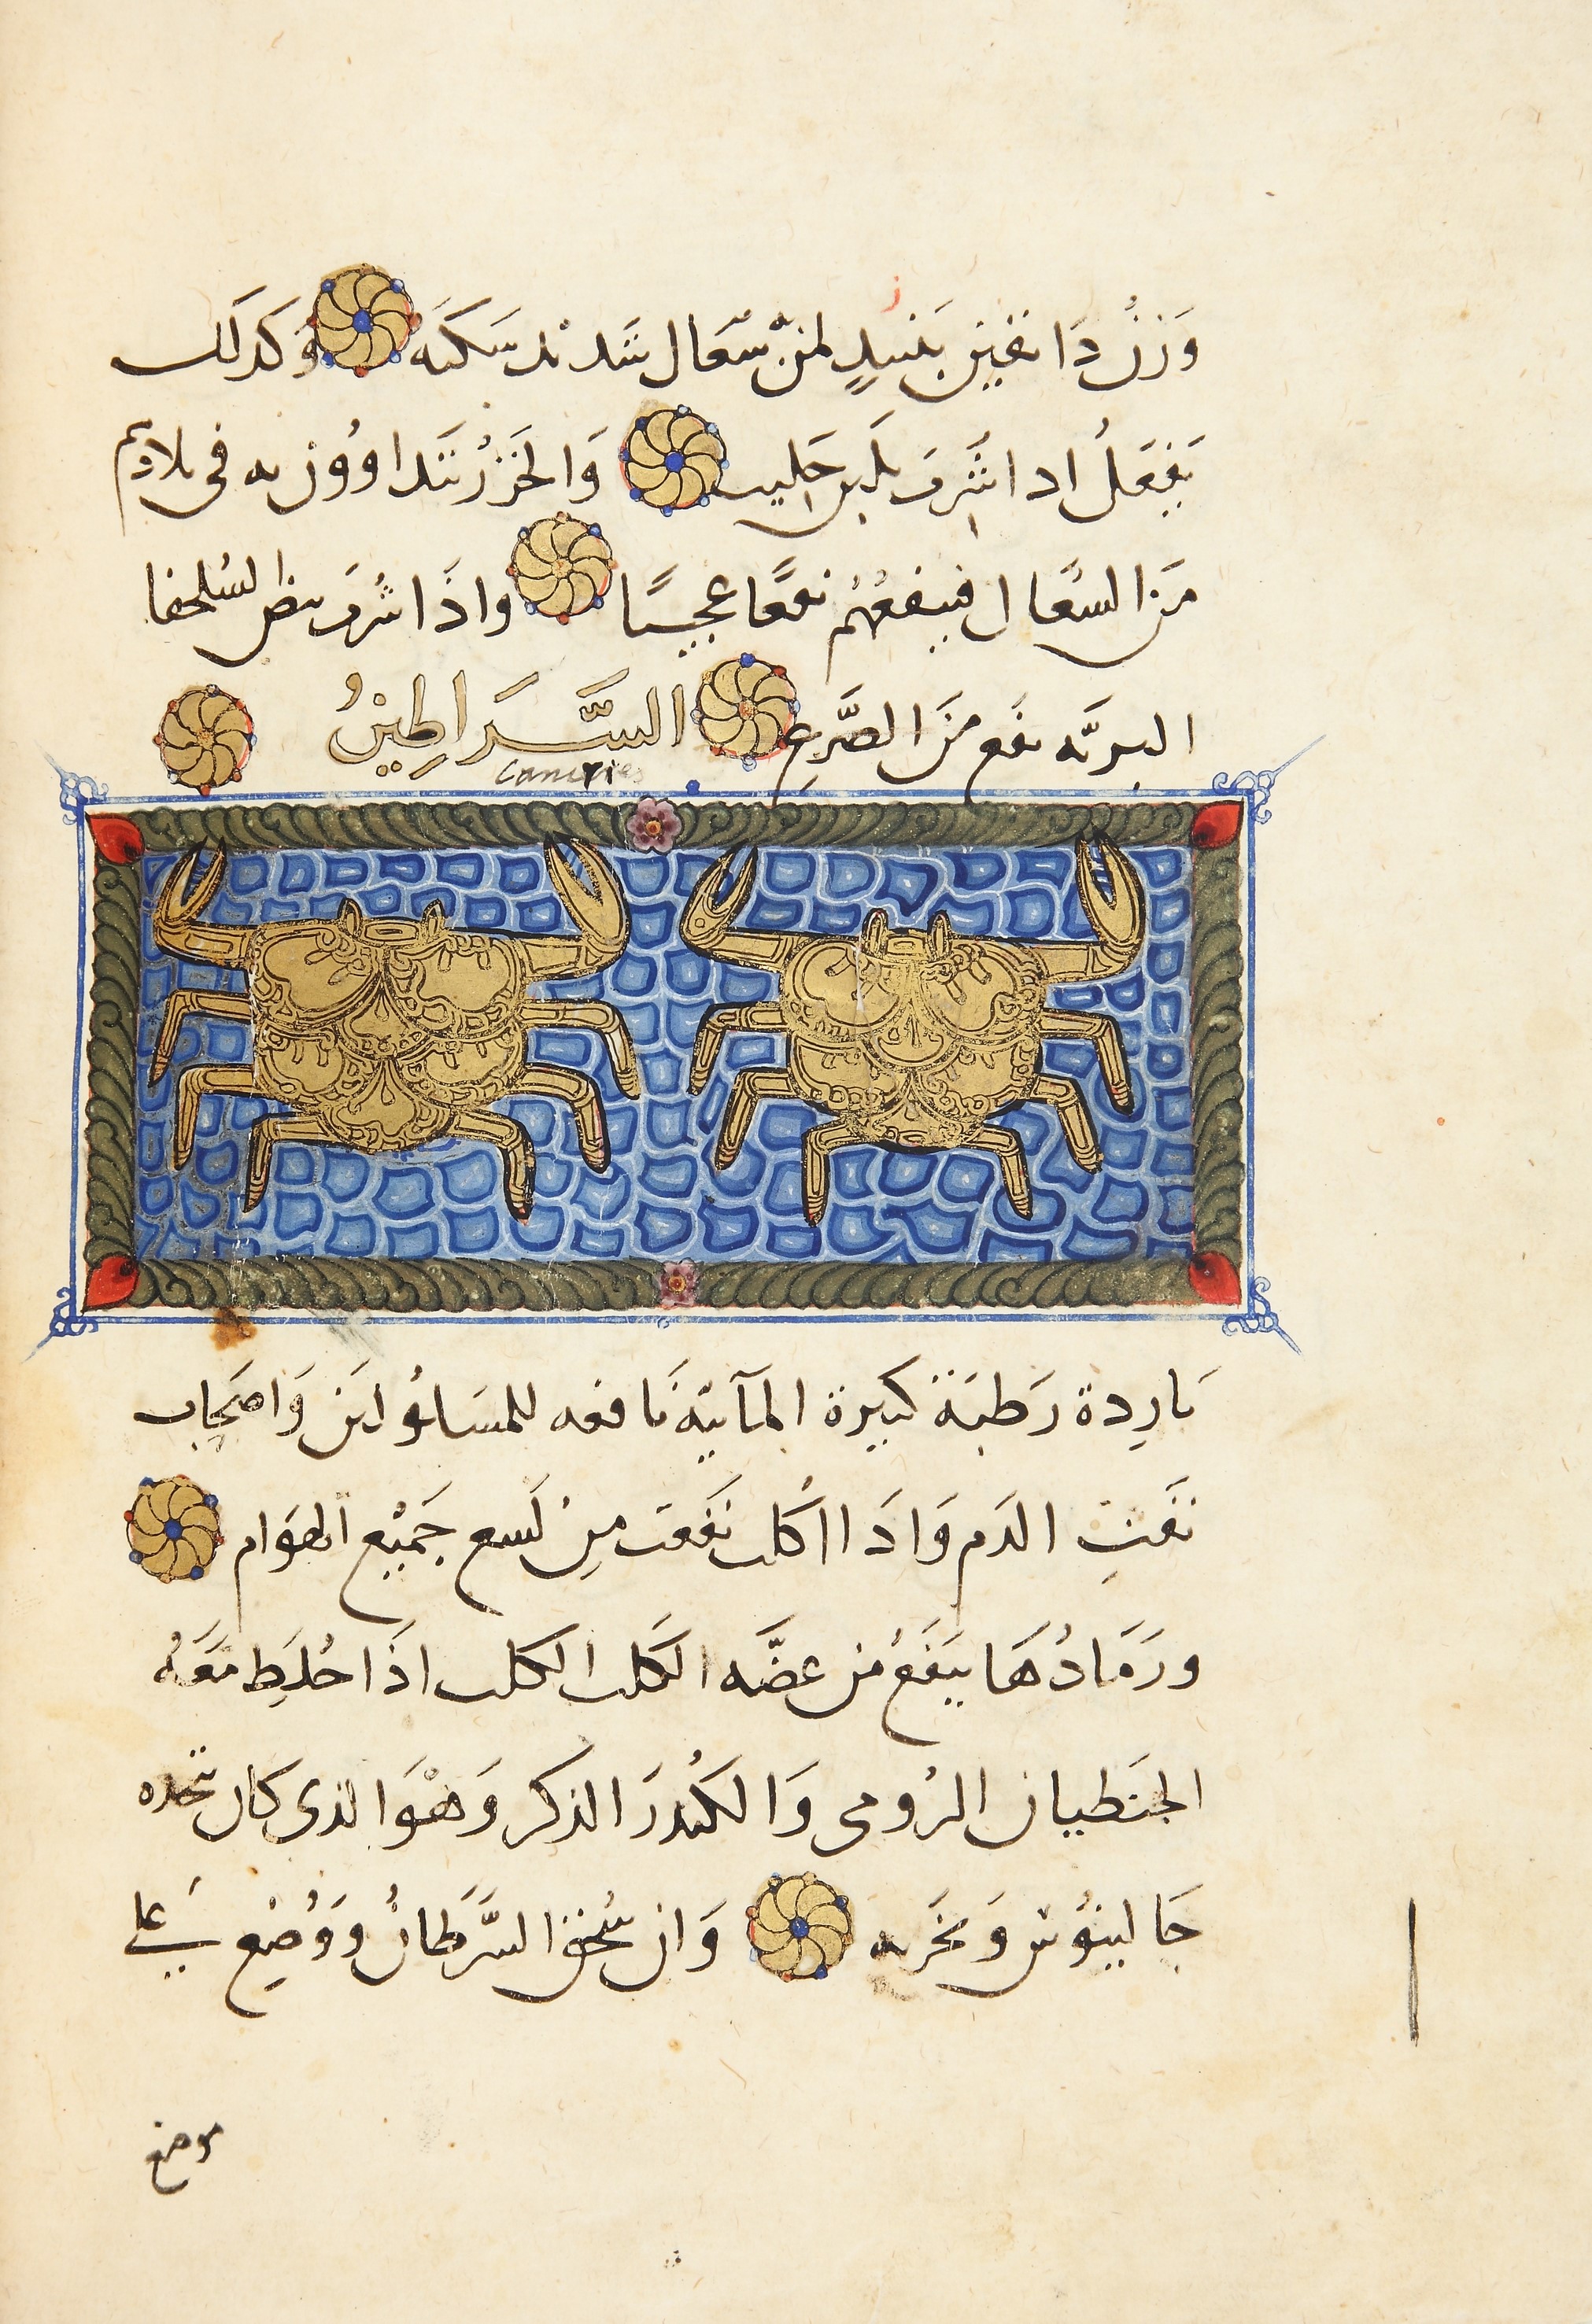 وَزنُ دَانقين بنَبيدٍ لمن سّعَال شَديد سَكنَه وَكدلَك
يَفعَلُ ادا شُرِبَ بلَبن حَليب وَالخَزرُ تندا وُوزبه فى بلادهم
مَن السعَال فينفعُهُم نفعًا عجيبًا واذَا شُربَ بيض السُلحفا
البريَّه نفَع مَن الصَّرعِ السَّرَاطِينُ
Cancries
بَارِدة رَطبَة كبيرة المآئيّة نَافعه للمسَلولين وَاصحَاب
نَفَثِ الدَم وَاذَا اكُلت نفَعَت مِن لَسع جَميْع الهوَام
ورَمَادُهَا يَنفعُ من عضَّه الكَلب الكلب اذَا خُلِط مَعَهُ
الجنطيان الرُومى وَالكُندرَ الذكر وَهوَ الذى كان يتخذه
جَالينوُس وَبخَربه وَان سُحق السَّرَطَانُ ووُضِع على
موضع